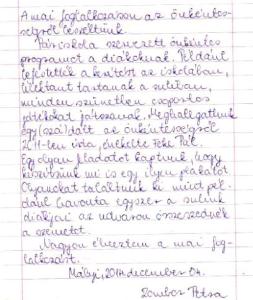 A mai foglalkozáson az önkéntes-
ségről beszéltünk.
Pár iskola szervezett önkéntes
programot a diákoknak. Például
lefestették a kerítést az iskolában,
teleltant tartanak a suliban,
minden szünetben csoportos
játékokat játszanak. Meghallgattunk
egy (szá) dalt az önkéntességről
2011-ben írta, énekelte Feke Pál.
Egy olyan feladatot kaptunk, hogy
készítsünk mi is egy ilyen plakátot
Olyanokat találtunk ki mint pél-
dául havonta egyszer a sulink
diákjai az udvaron összeszednék
a szemetet.
Nagyon élveztem a mai fog-
lalkozást.
Mályi, 2014. december 04.
Zombor Petra